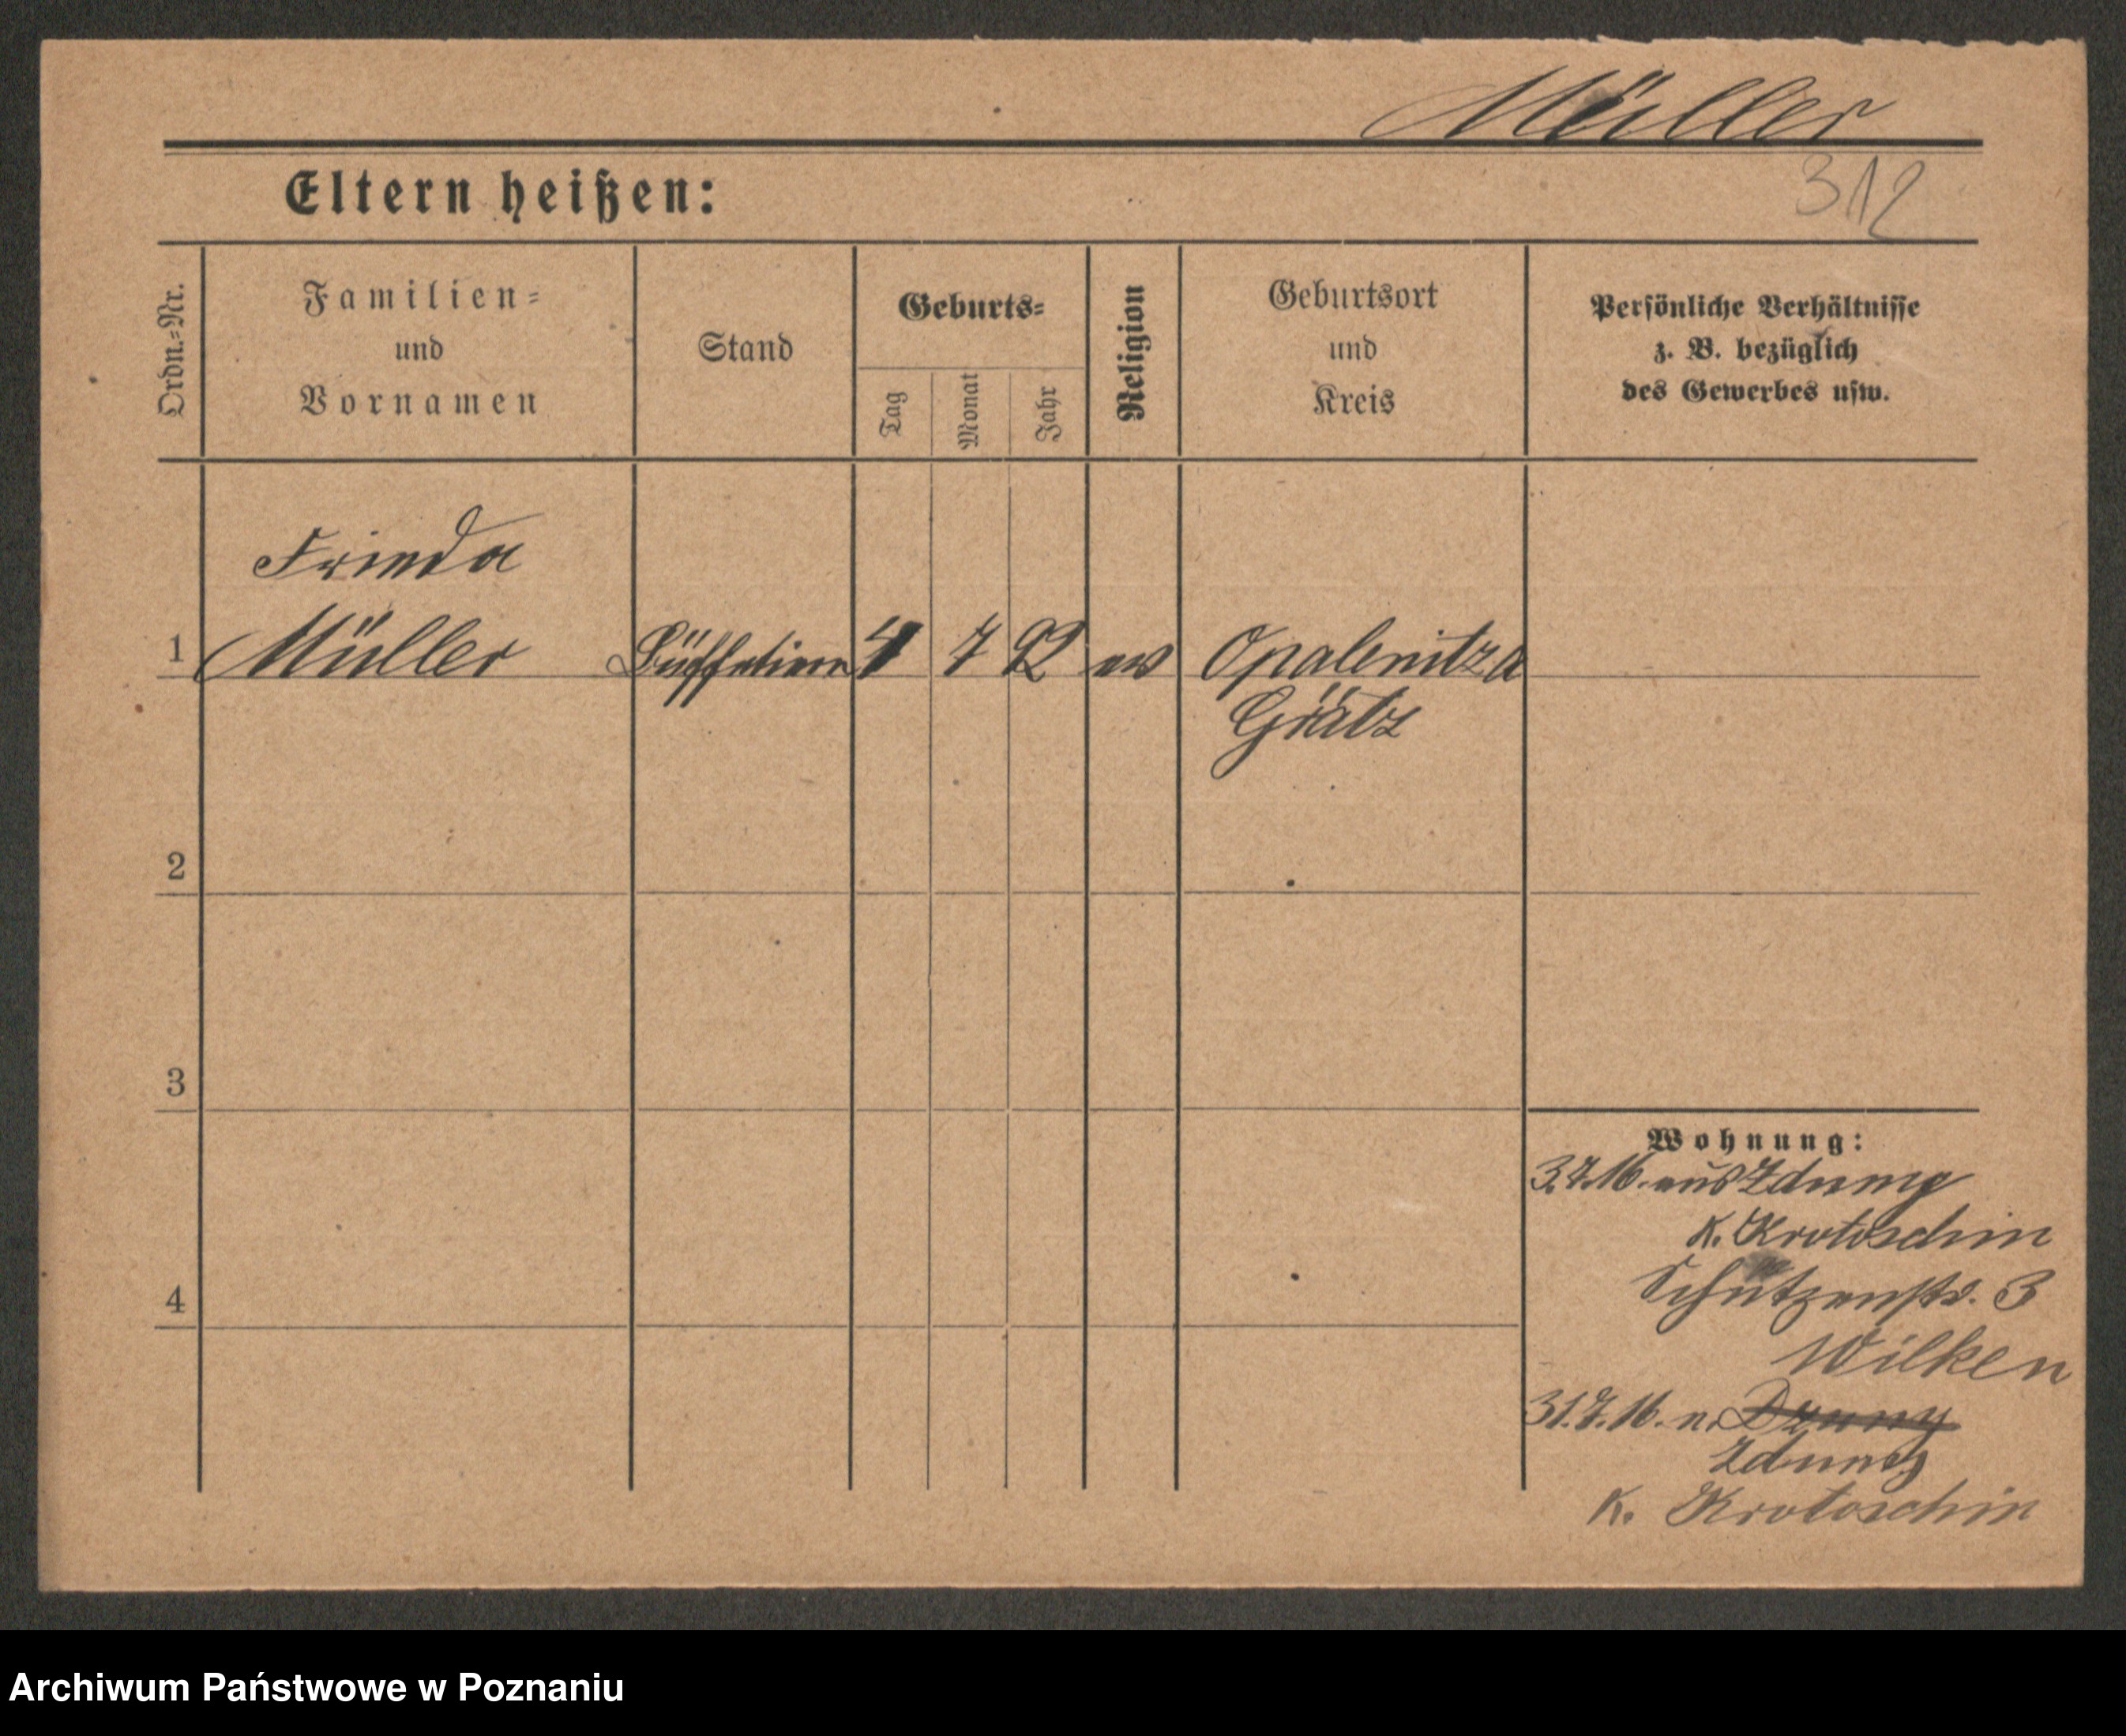 Müller
312
Eltern heißen:
Ordn.=Nr.
Familien=
und
Vornamen
Stand
Geburts=
Tag
Monat
Jahr
Religion
Geburtsort
und
Kreis
Persönliche Verhältnisse
z. B. bezüglich
des Gewerbes usw.
Frieda
1 Müller 7 92 ev Opalenitza
Grätz
2
3
4
Wohnung:
3.7.16. aus Zduny
K. Krotoschin
Schützenstr. 3
Wilken
31.7.16. n.
Zduny
K. Krotoschin
Archiwum Państwowe w Poznaniu